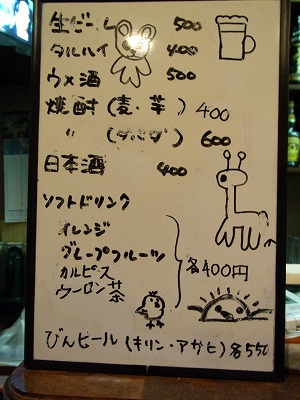 生ビール 500
タルハイ 400
ウメ酒 500
焼酎(麦・芋) 400
〃 ( ) 600
日本酒 400
ソフトドリンク
オレンジ
グレープフルーツ
カルピス
ウーロン茶
各400円
びんビール(キリン・アサヒ)各550